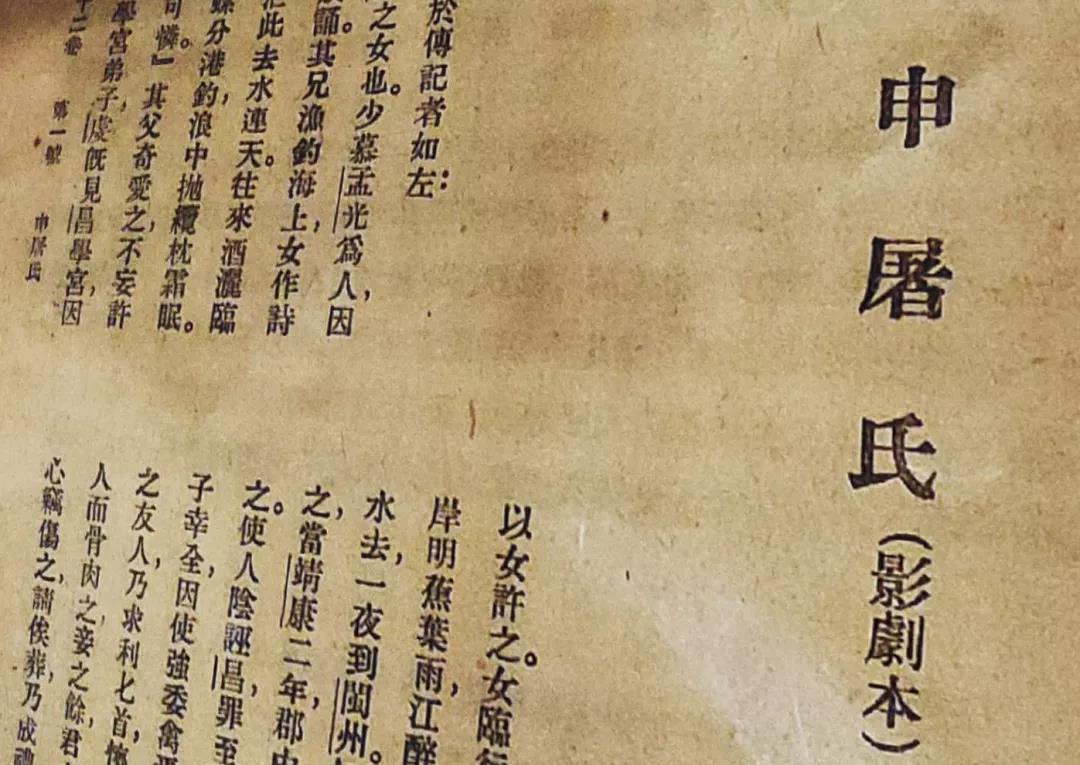 申屠氏（影劇本）
於傳記者如左：
之女也。少慕孟光爲人，因
誦其兄漁釣海上，女作詩
此去水連天。往來酒灑臨
分港釣，浪中拋纜枕霜眠。
憐』其父奇愛之，不妄許
學宮弟子，虔既見昌學宮，因
二卷 第一號 申屠氏
以女許之。女臨行
岸明蕉葉雨，江醉
水去，一夜到閩州。
之，當靖康二年，郡中
之。使人陰誣昌罪至
子幸全，因使強委禽焉
之友人，乃求利匕首，懷
人而骨肉之妾之餘，君
心竊傷之，請俟葬，乃成禮